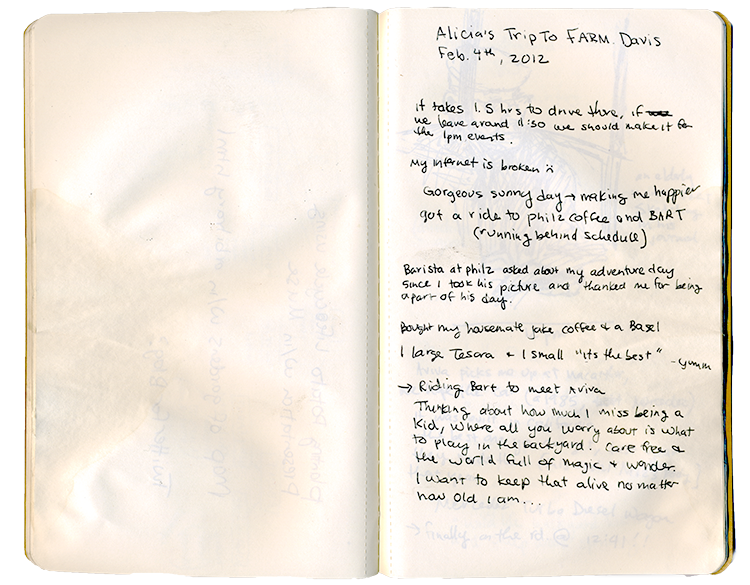 Alicia's Trip To FARM. Davis
Feb. 4th, 2012
it takes 1.5 hrs to drive there, if
we leave around 11:30 we should make it for
the 1pm events.
My internet is broken :(
Gorgeous sunny day → making me happier
got a ride to philz coffee and BART
(running behind schedule)
Barista at philz asked about my adventure day
since I took his picture and thanked me for being
a part of his day.
Bought my housemate jake coffee & a Basel
1 large Tesora & 1 small "its the best" - yumm
→ Riding Bart to meet Aviva
Thinking about how much I miss being a
kid, where all you worry about is what
to play in the backyard. Care free &
the world full of magic & wonder.
I want to keep that alive no matter
how old I am...
→ finally on the rd. @ 12:41!!